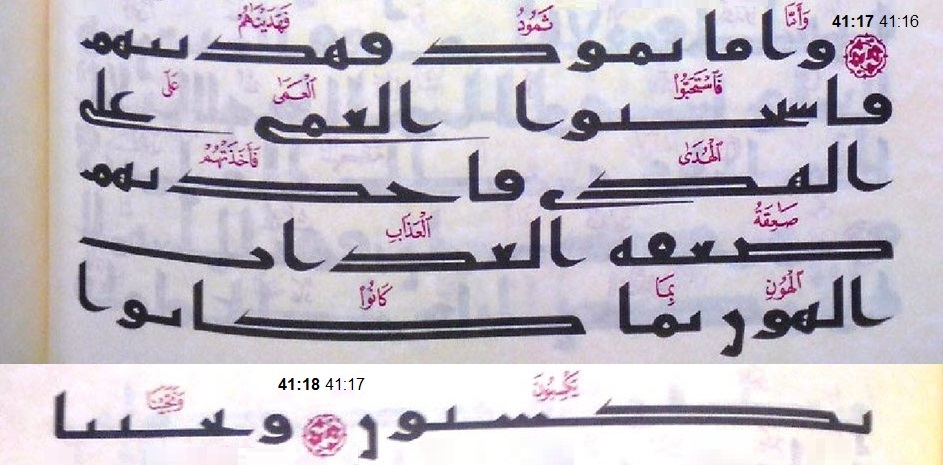 وَأَمَّا ثَمُودُ فَهَدَيْنَٰهُمْ 41:17 41:16
واما ثمود فهدينهم
فَٱسْتَحَبُّوا۟ ٱلْعَمَىٰ عَلَى
فاستحبوا العمى على
ٱلْهُدَىٰ فَأَخَذَتْهُمْ
الهدى فاخذتهم
صَٰعِقَةُ ٱلْعَذَابِ
صعقه العذاب
ٱلْهُونِ بِمَا كَانُوا۟
الهون بما كانوا
41:18 41:17
يَكْسِبُونَ وَنَجَّيْنَا
يكسبون ونجينا